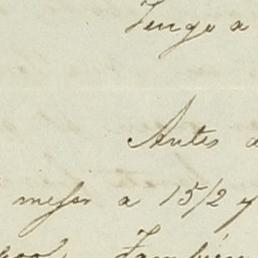 Tengo a
Antes
mejor a 15/2 y
También